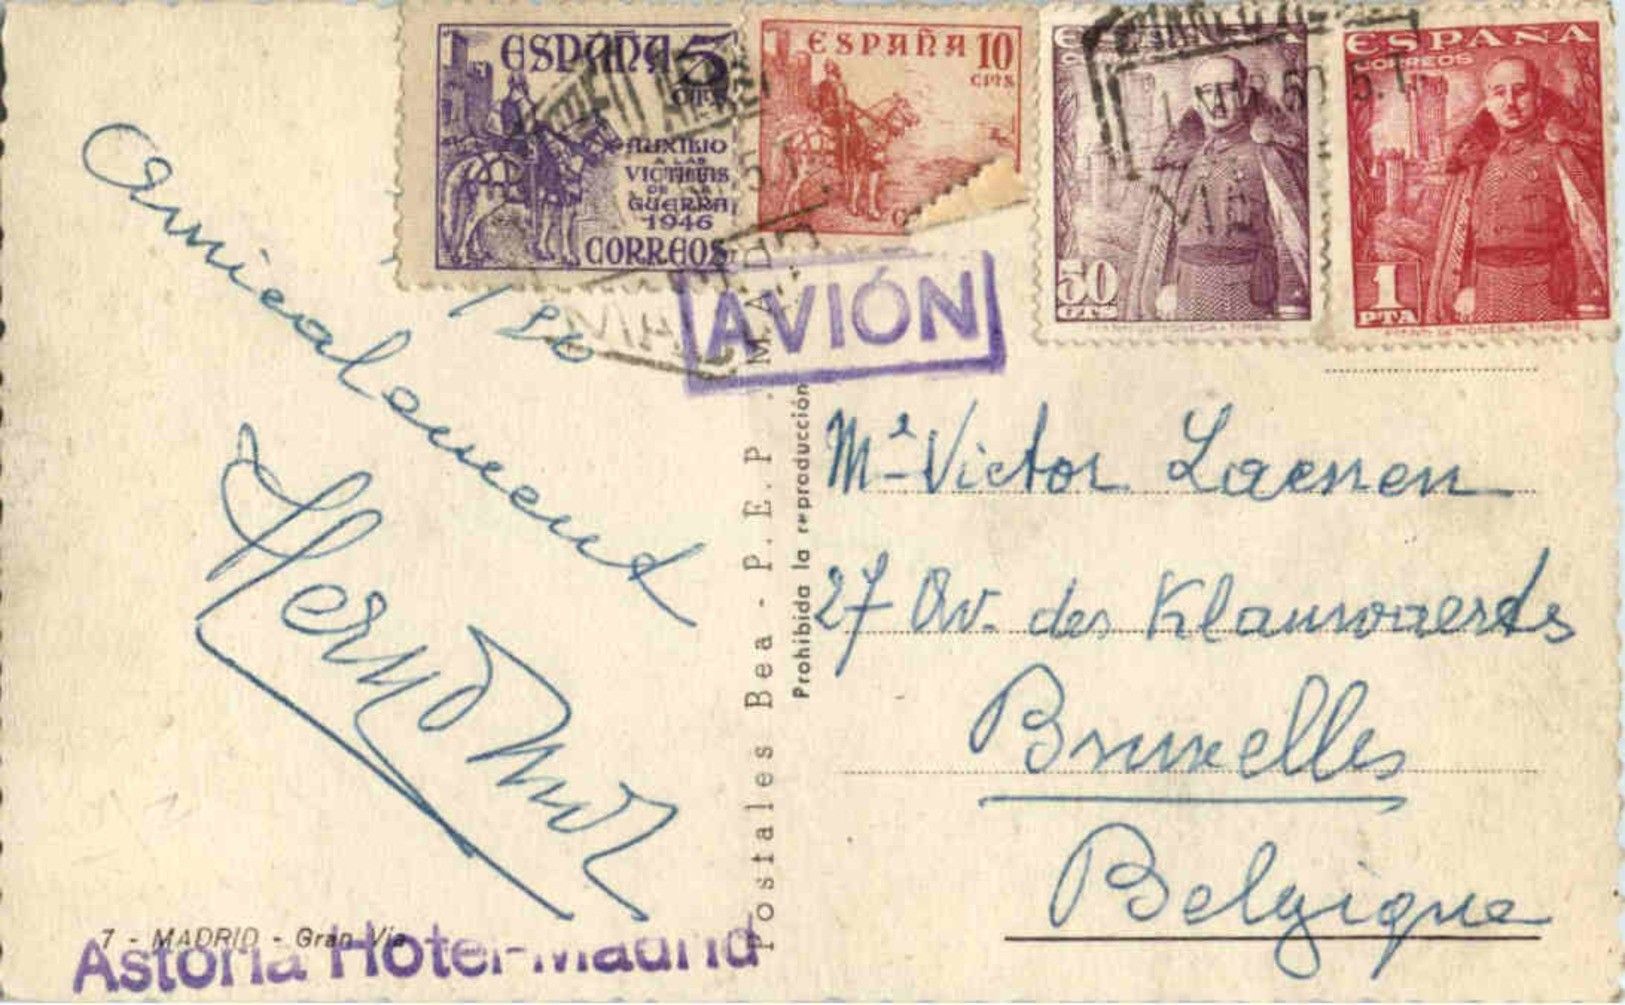 ESPAÑA 5
CTS
AUXILIO
A LAS
VICTIMAS
DE LA
GUERRA
1946
CORREOS
ESPAÑA 10
CTS.
ESPAÑA
50
CTS
ESPAÑA
CORREOS
1
PTA
AVIÓN
Amicalement
7 - MADRID - Gran Vía
Astoria Hotel-Madrid
Postales Bea - P.E.P. - MADRID
Prohibida la reproducción
Mr Victor Laenen
27 Av. des Klauwaerts
Bruxelles
Belgique